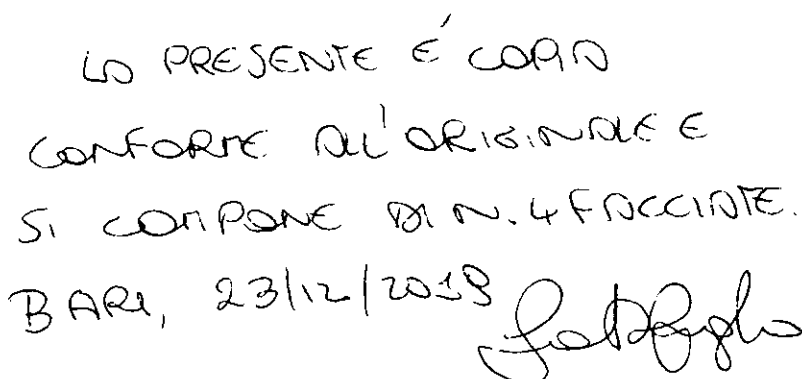 LA PRESENTE É COPIA
CONFORME ALL'ORIGINALE E
SI COMPONE DI N. 4 FACCIATE.
BARI, 23/12/2019